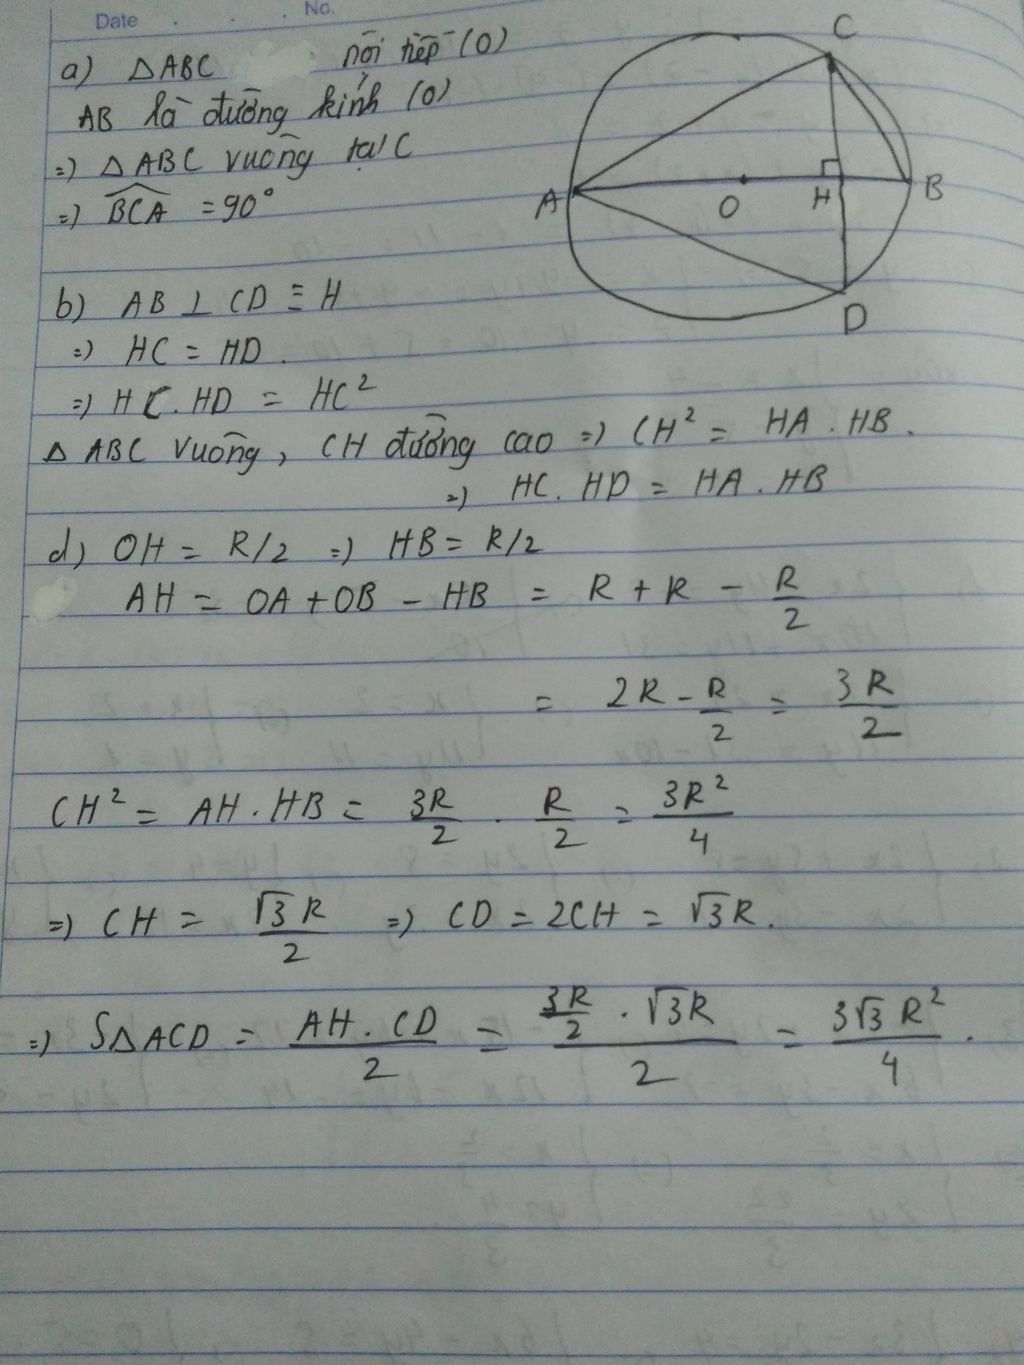 Date . . . No.
a) △ABC nội tiếp (O)
AB là đường kính (O)
=) △ABC vuông tại C
=) BCA = 90°
C
A
O
H
B
D
b) AB ⊥ CD ≡ H
=) HC = HD.
=) HC.HD = HC²
△ABC vuông, CH đường cao =) CH² = HA.HB.
=) HC.HD = HA.HB
d) OH = R/2 =) HB = R/2
AH = OA + OB - HB = R + R - R/2
= 2R - R/2 = 3R/2
CH² = AH.HB = 3R/2 . R/2 = 3R²/4
=) CH = √3R/2 =) CD = 2CH = √3R.
=) S△ACD = AH.CD/2 = 3R/2 . √3R/2 = 3√3R²/4.